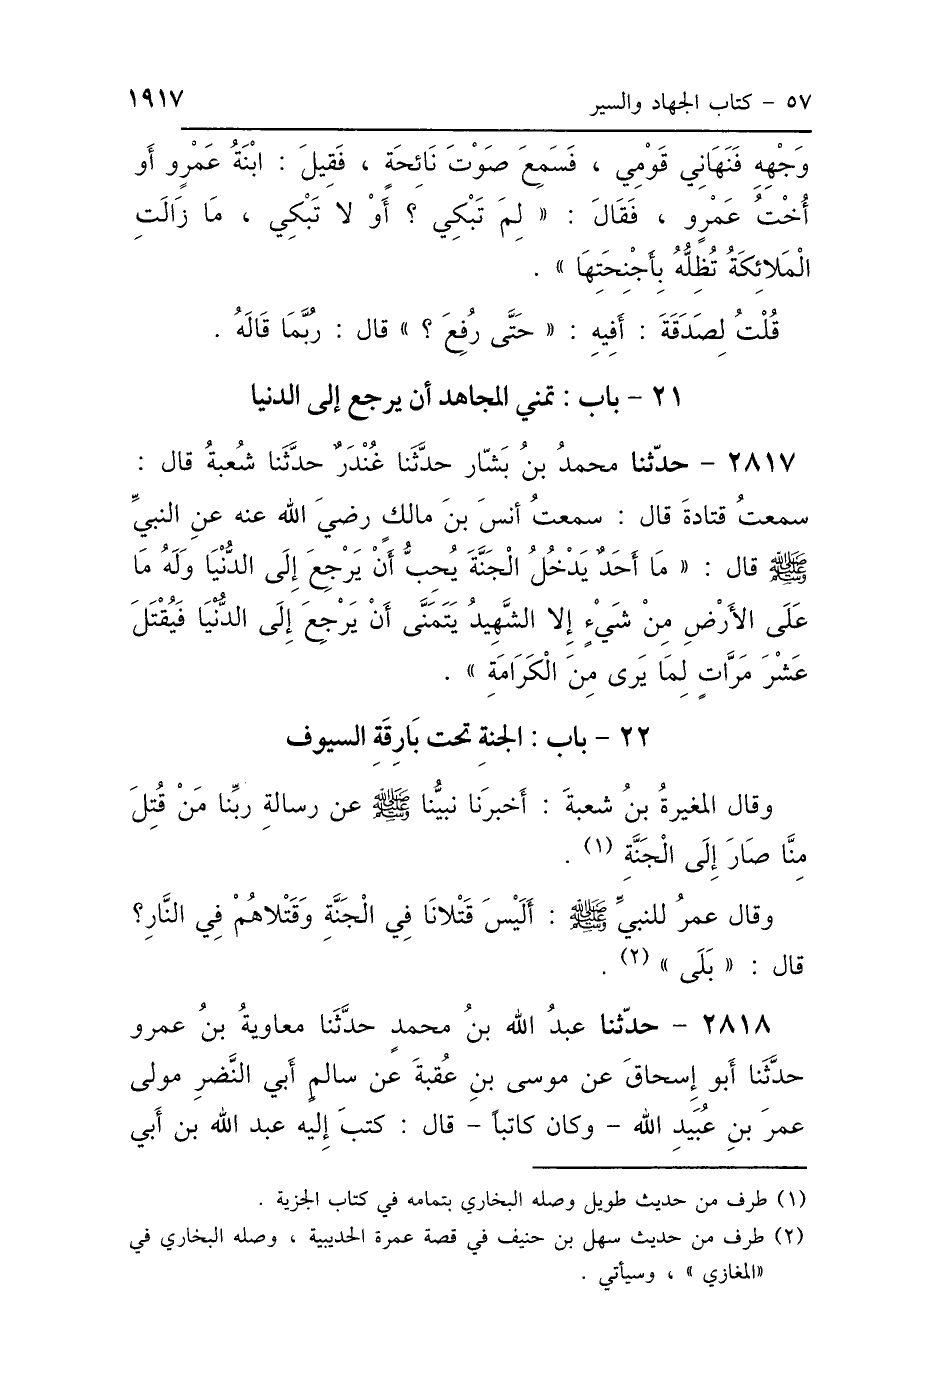 ٥٧ - كتاب الجهاد والسير ١٩١٧
وَجْهِهِ فَنَهَانِي قَوْمِي ، فَسَمِعَ صَوْتَ نَائِحَةٍ ، فَقِيلَ : ابْنَةُ عَمْرٍو أَو
أُخْتُ عَمْرٍو ، فَقَالَ : « لِمَ تَبْكِي ؟ أَوْ لا تَبْكِي ، مَا زَالَتِ
الْمَلائِكَةُ تُظِلُّهُ بِأَجْنِحَتِهَا » .
قُلْتُ لِصَدَقَةَ : أَفِيهِ : « حَتَّى رُفِعَ ؟ » قال : رُبَّمَا قَالَهُ .
٢١ - باب : تمني المجاهد أن يرجع إلى الدنيا
٢٨١٧ - حدّثنا محمدُ بنُ بَشّار حدَّثَنا غُنْدَرٌ حدَّثَنا شُعبةُ قال :
سمعتُ قتادةَ قال : سمعتُ أنسَ بنَ مالكٍ رضيَ الله عنه عنِ النبيِّ
ﷺ قال : « مَا أَحَدٌ يَدْخُلُ الْجَنَّةَ يُحِبُّ أَنْ يَرْجِعَ إِلَى الدُّنْيَا وَلَهُ مَا
عَلَى الأَرْضِ مِنْ شَيْءٍ إِلا الشَّهِيدُ يَتَمَنَّى أَنْ يَرْجِعَ إِلَى الدُّنْيَا فَيُقْتَلَ
عَشْرَ مَرَّاتٍ لِمَا يَرى مِنَ الْكَرَامَةِ » .
٢٢ - باب : الجنة تحت بَارِقَةِ السيوف
وقال المغيرةُ بنُ شعبةَ : أَخبرَنا نبيُّنا ﷺ عن رسالةِ ربِّنا مَنْ قُتِلَ
مِنَّا صَارَ إِلَى الْجَنَّةِ (١) .
وقال عمرُ للنبيِّ ﷺ : أَلَيْسَ قَتْلانَا فِي الْجَنَّةِ وَقَتْلاهُمْ فِي النَّارِ؟
قال : « بَلَى » (٢) .
٢٨١٨ - حدّثنا عبدُ الله بنُ محمدٍ حدَّثَنا معاويةُ بنُ عمرو
حدَّثَنا أَبو إِسحاقَ عن موسى بنِ عُقبةَ عن سالمٍ أَبي النَّضرِ مولى
عمرَ بنِ عُبَيدِ الله - وكان كاتباً - قال : كتبَ إِليه عبد الله بن أَبي
(١) طرف من حديث طويل وصله البخاري بتمامه في كتاب الجزية .
(٢) طرف من حديث سهل بن حنيف في قصة عمرة الحديبية ، وصله البخاري في
«المغازي » ، وسيأتي .